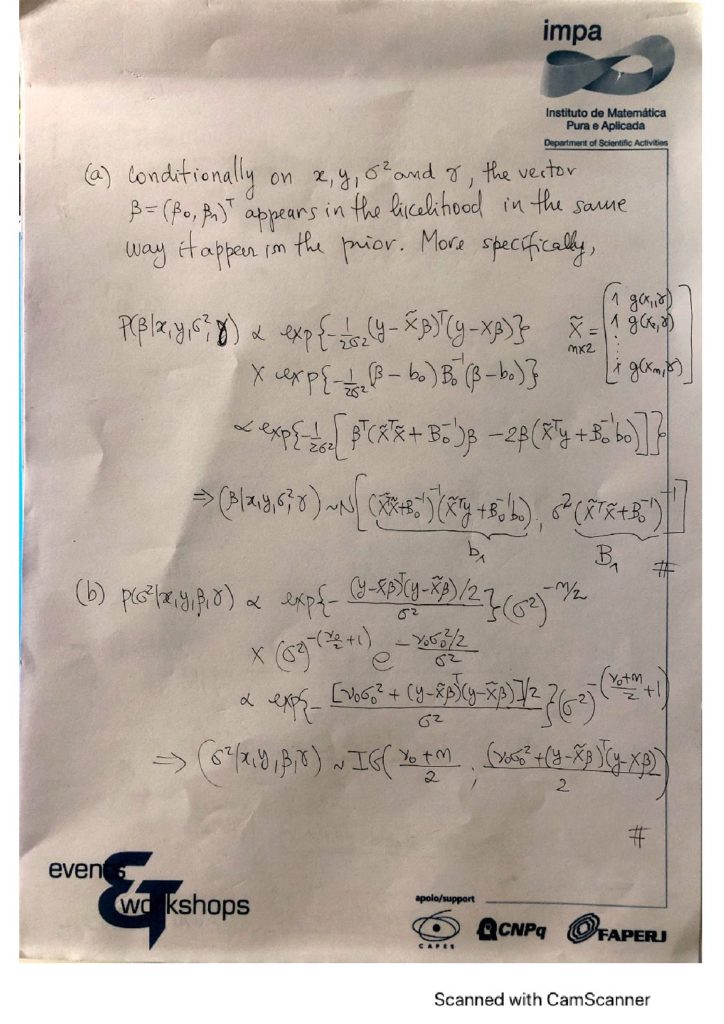 impa
Instituto de Matemática
Pura e Aplicada
Department of Scientific Activities
(a) Conditionally on x, y, σ² and γ, the vector
β = (β₀, β₁)ᵀ appears in the likelihood in the same
way it appear in the prior. More specifically,
P(β|x,y,σ²,γ) ∝ exp{-1/2σ² (y - X̃β)ᵀ(y - Xβ)} X̃ = [1 g(x₁,γ)
n×2 1 g(x₂,γ)
⋮
1 g(xₙ,γ)]
× exp{-1/2σ² (β - b₀) B₀⁻¹ (β - b₀)}
∝ exp{-1/2σ² [βᵀ(X̃ᵀX̃ + B₀⁻¹)β - 2β(X̃ᵀy + B₀⁻¹b₀)]}
⇒ (β|x,y,σ²,γ) ~ N[(X̃ᵀX̃ + B₀⁻¹)⁻¹(X̃ᵀy + B₀⁻¹b₀), σ²(X̃ᵀX̃ + B₀⁻¹)⁻¹]
b₁ B₁ #
(b) p(σ²|x,y,β,γ) ∝ exp{- (y-X̃β)ᵀ(y-X̃β)/2 / σ²}(σ²)^(-n/2)
× (σ²)^(-(ν₀/2 + 1)) e^(- ν₀σ₀²/2 / σ²)
∝ exp{- [ν₀σ₀² + (y-X̃β)ᵀ(y-X̃β)]/2 / σ²}(σ²)^(-((ν₀+n)/2 + 1))
⇒ (σ²|x,y,β,γ) ~ IG( (ν₀+n)/2 , (ν₀σ₀² + (y-X̃β)ᵀ(y-Xβ))/2 )
#
events
&
workshops
apoio/support
CAPES CNPq FAPERJ
Scanned with CamScanner